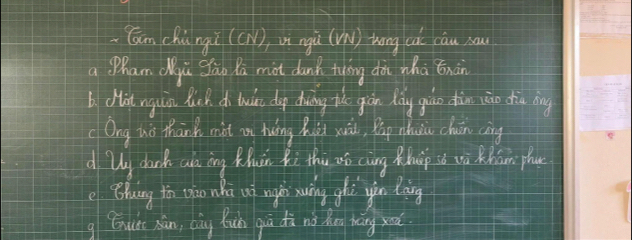 - Tìm chủ ngữ (CN), vị ngữ (VN) trong các câu sau
a Phạm Ngũ Lão là một danh tướng đời nhà Trần
b. Một người lính đi trước dẹp đường tức giận lấy giáo đâm vào đùi ông
c Ông trở thành một vị tướng kiệt xuất, lập nhiều chiến công
d. Uy danh của ông khiến kẻ thù vô cùng khiếp sợ và khâm phục.
e. Chúng tôi vào nhà và ngồi xuống ghế yên lặng
g Trước sân, cây bưởi già đã nở hoa trắng xoá.